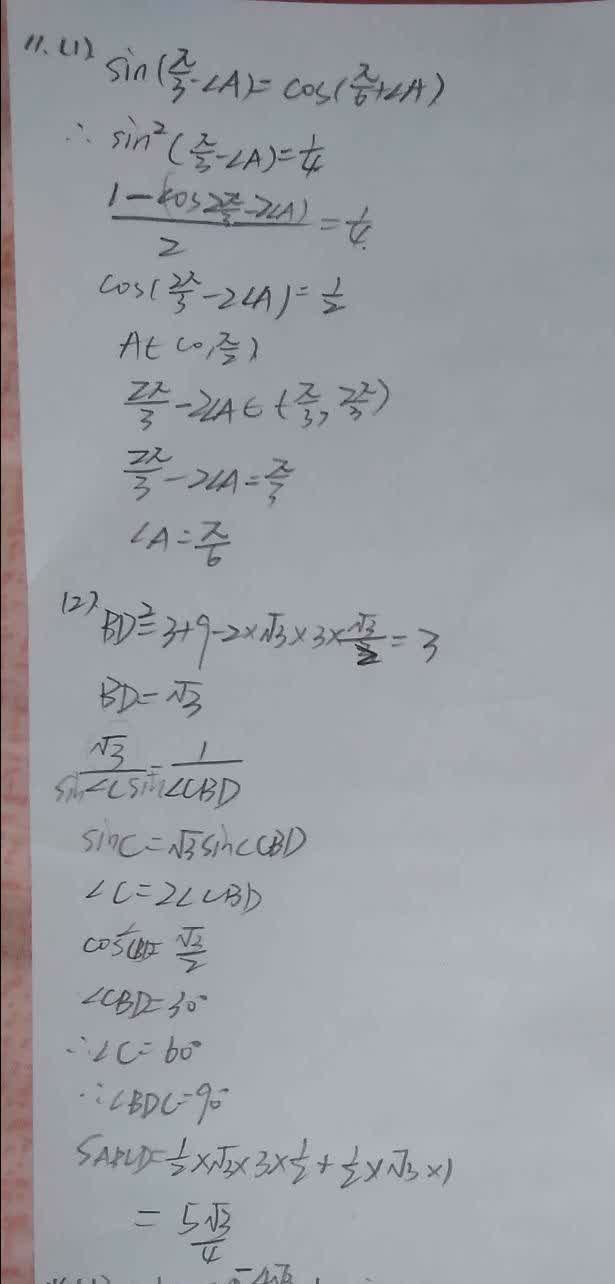 11.(1) sin(π/3-∠A)=cos(π/6+∠A)
∴ sin²(π/3-∠A)=1/4
(1-cos(2π/3-2∠A))/2=1/4
cos(2π/3-2∠A)=1/2
A∈(0,π/2)
2π/3-2∠A∈(-π/3,2π/3)
2π/3-2∠A=π/3
∠A=π/6
(2) BD²=3+9-2×√3×3×√3/2=3
BD=√3
√3/sin∠C=1/sin∠CBD
sinC=√3sin∠CBD
∠C=2∠CBD
cos∠CBD=√3/2
∠CBD=30°
∴∠C=60°
∴∠BDC=90°
SABCD=1/2×√3×3×1/2+1/2×√3×1
=5√3/4